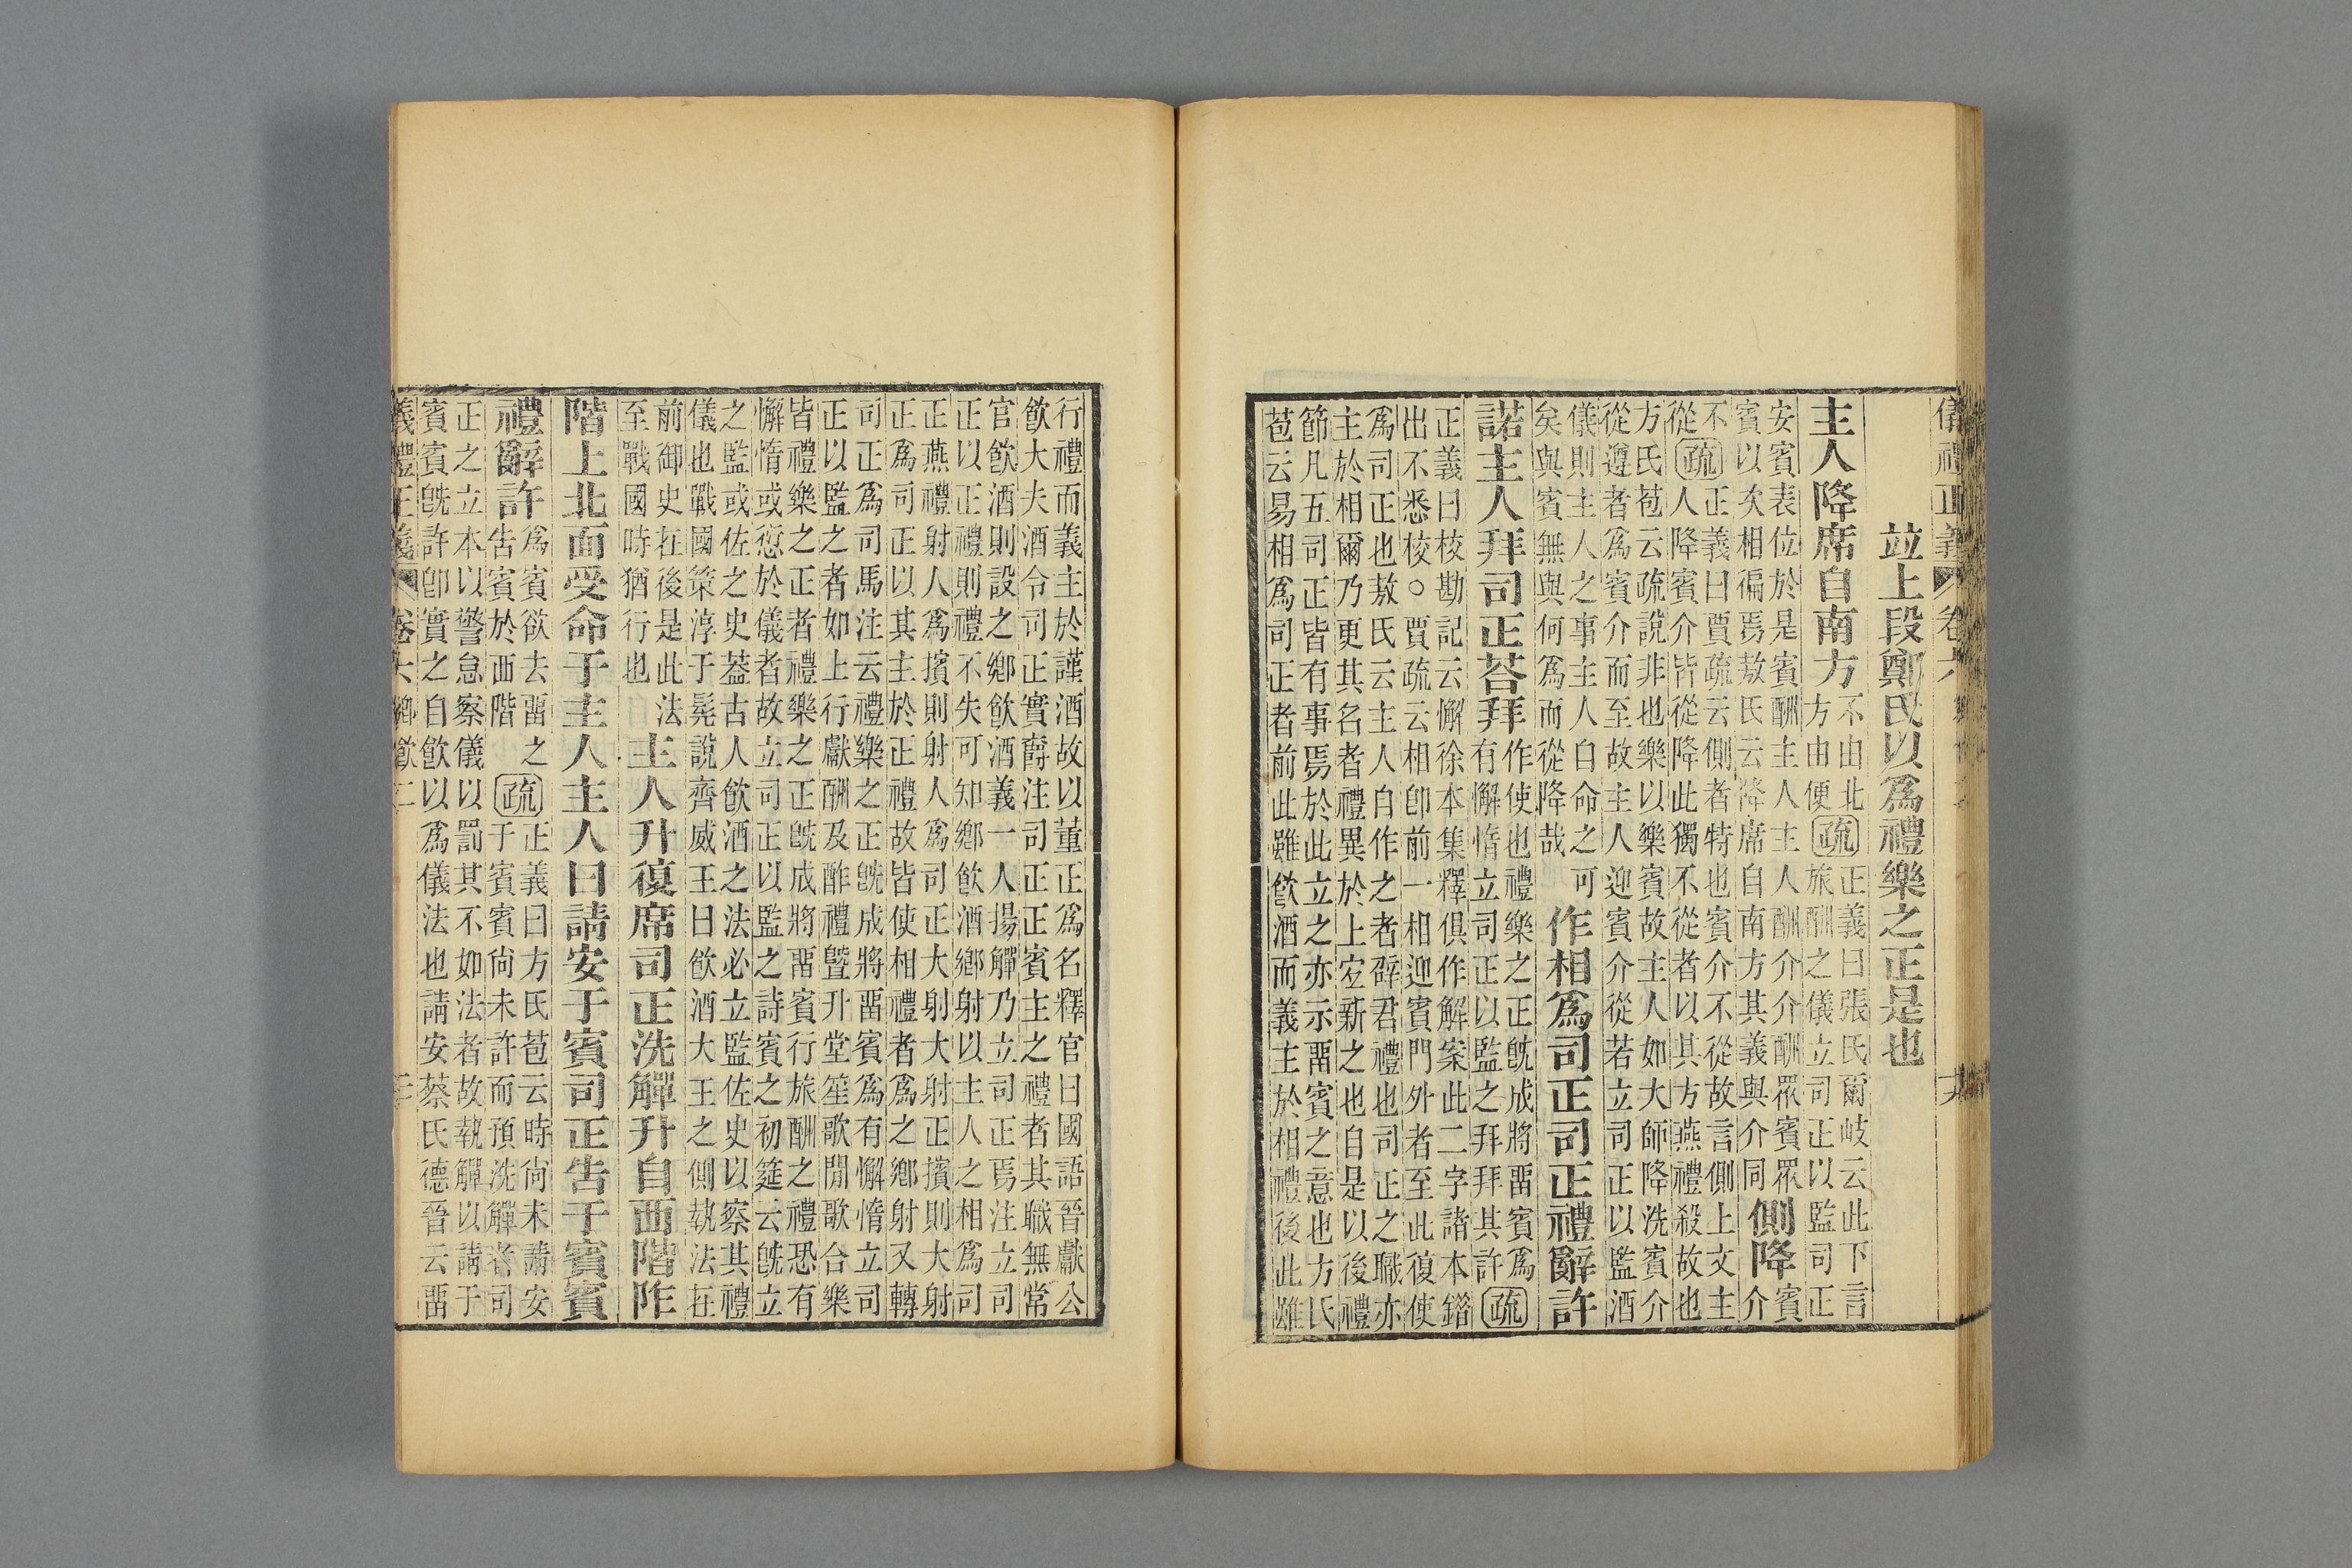 儀禮正義 卷六
竝上段鄭氏以爲禮樂之正是也
主人降席自南方 不由北方由便 疏 正義曰張氏爾岐云此下言旅酬之儀立司正以監司正
安賓表位於是賓酬主人主人酬介介酬眾賓眾
賓以次相徧焉敖氏云降席自南方其義與介同 側降 賓介
不從 疏 正義曰賈疏云側者特也賓介不從故言側上文主
人降賓介皆從降此獨不從者以其方燕禮殺故也
方氏苞云疏說非也樂以樂賓故主人如大師降洗賓介
從遵者爲賓介而至故主人迎賓介從若立司正以監酒
儀則主人之事主人自命之可
矣與賓無與何爲而從降哉 作相爲司正司正禮辭許
諾主人拜司正荅拜 作使也禮樂之正旣成將畱賓爲
有懈惰立司正以監之拜拜其許 疏
正義曰校勘記云懈徐本集釋俱作解案此二字諸本錯
出不悉校○賈疏云相卽前一相迎賓門外者至此復使
爲司正也敖氏云主人自作之者辟君禮也司正之職亦
主於相爾乃更其名者禮異於上宐新之也自是以後禮
節凡五司正皆有事焉於此立之亦示畱賓之意也方氏
苞云易相爲司正者前此雖飮酒而義主於相禮後此雖
行禮而義主於謹酒故以董正爲名釋官曰國語晉獻公
飮大夫酒令司正實爵注司正正賓主之禮者其職無常
官飮酒則設之鄉飮酒義一人揚觶乃立司正焉注立司
正以正禮則禮不失可知鄉飮酒鄉射以主人之相爲司
正燕禮射人爲擯則射人爲司正大射大射正擯則大射
正爲司正以其主於正禮故皆使相禮者爲之鄉射又轉
司正爲司馬注云禮樂之正旣成將畱賓爲有懈惰立司
正以監之者如上行獻酬及酢禮曁升堂笙歌閒歌合樂
皆禮樂之正者禮樂之正旣成將畱賓行旅酬之禮恐有
懈惰或愆於儀者故立司正以監之詩賓之初筵云旣立
之監或佐之史葢古人飮酒之法必立監佐史以察其禮
儀也戰國策淳于髡說齊威王曰飮酒大王之側執法在
前御史在後是此法
至戰國時猶行也 主人升復席司正洗觶升自西階阼
階上北面受命于主人主人曰請安于賓司正告于賓賓
禮辭許 爲賓欲去畱之告賓於西階 疏 正義曰方氏苞云時尙未請安
于賓賓尙未許而預洗觶者司
正之立本以警怠察儀以罰其不如法者故執觶以請于
賓賓旣許卽實之自飮以爲儀法也請安蔡氏德晉云畱
儀禮正義 卷六 鄉飮二